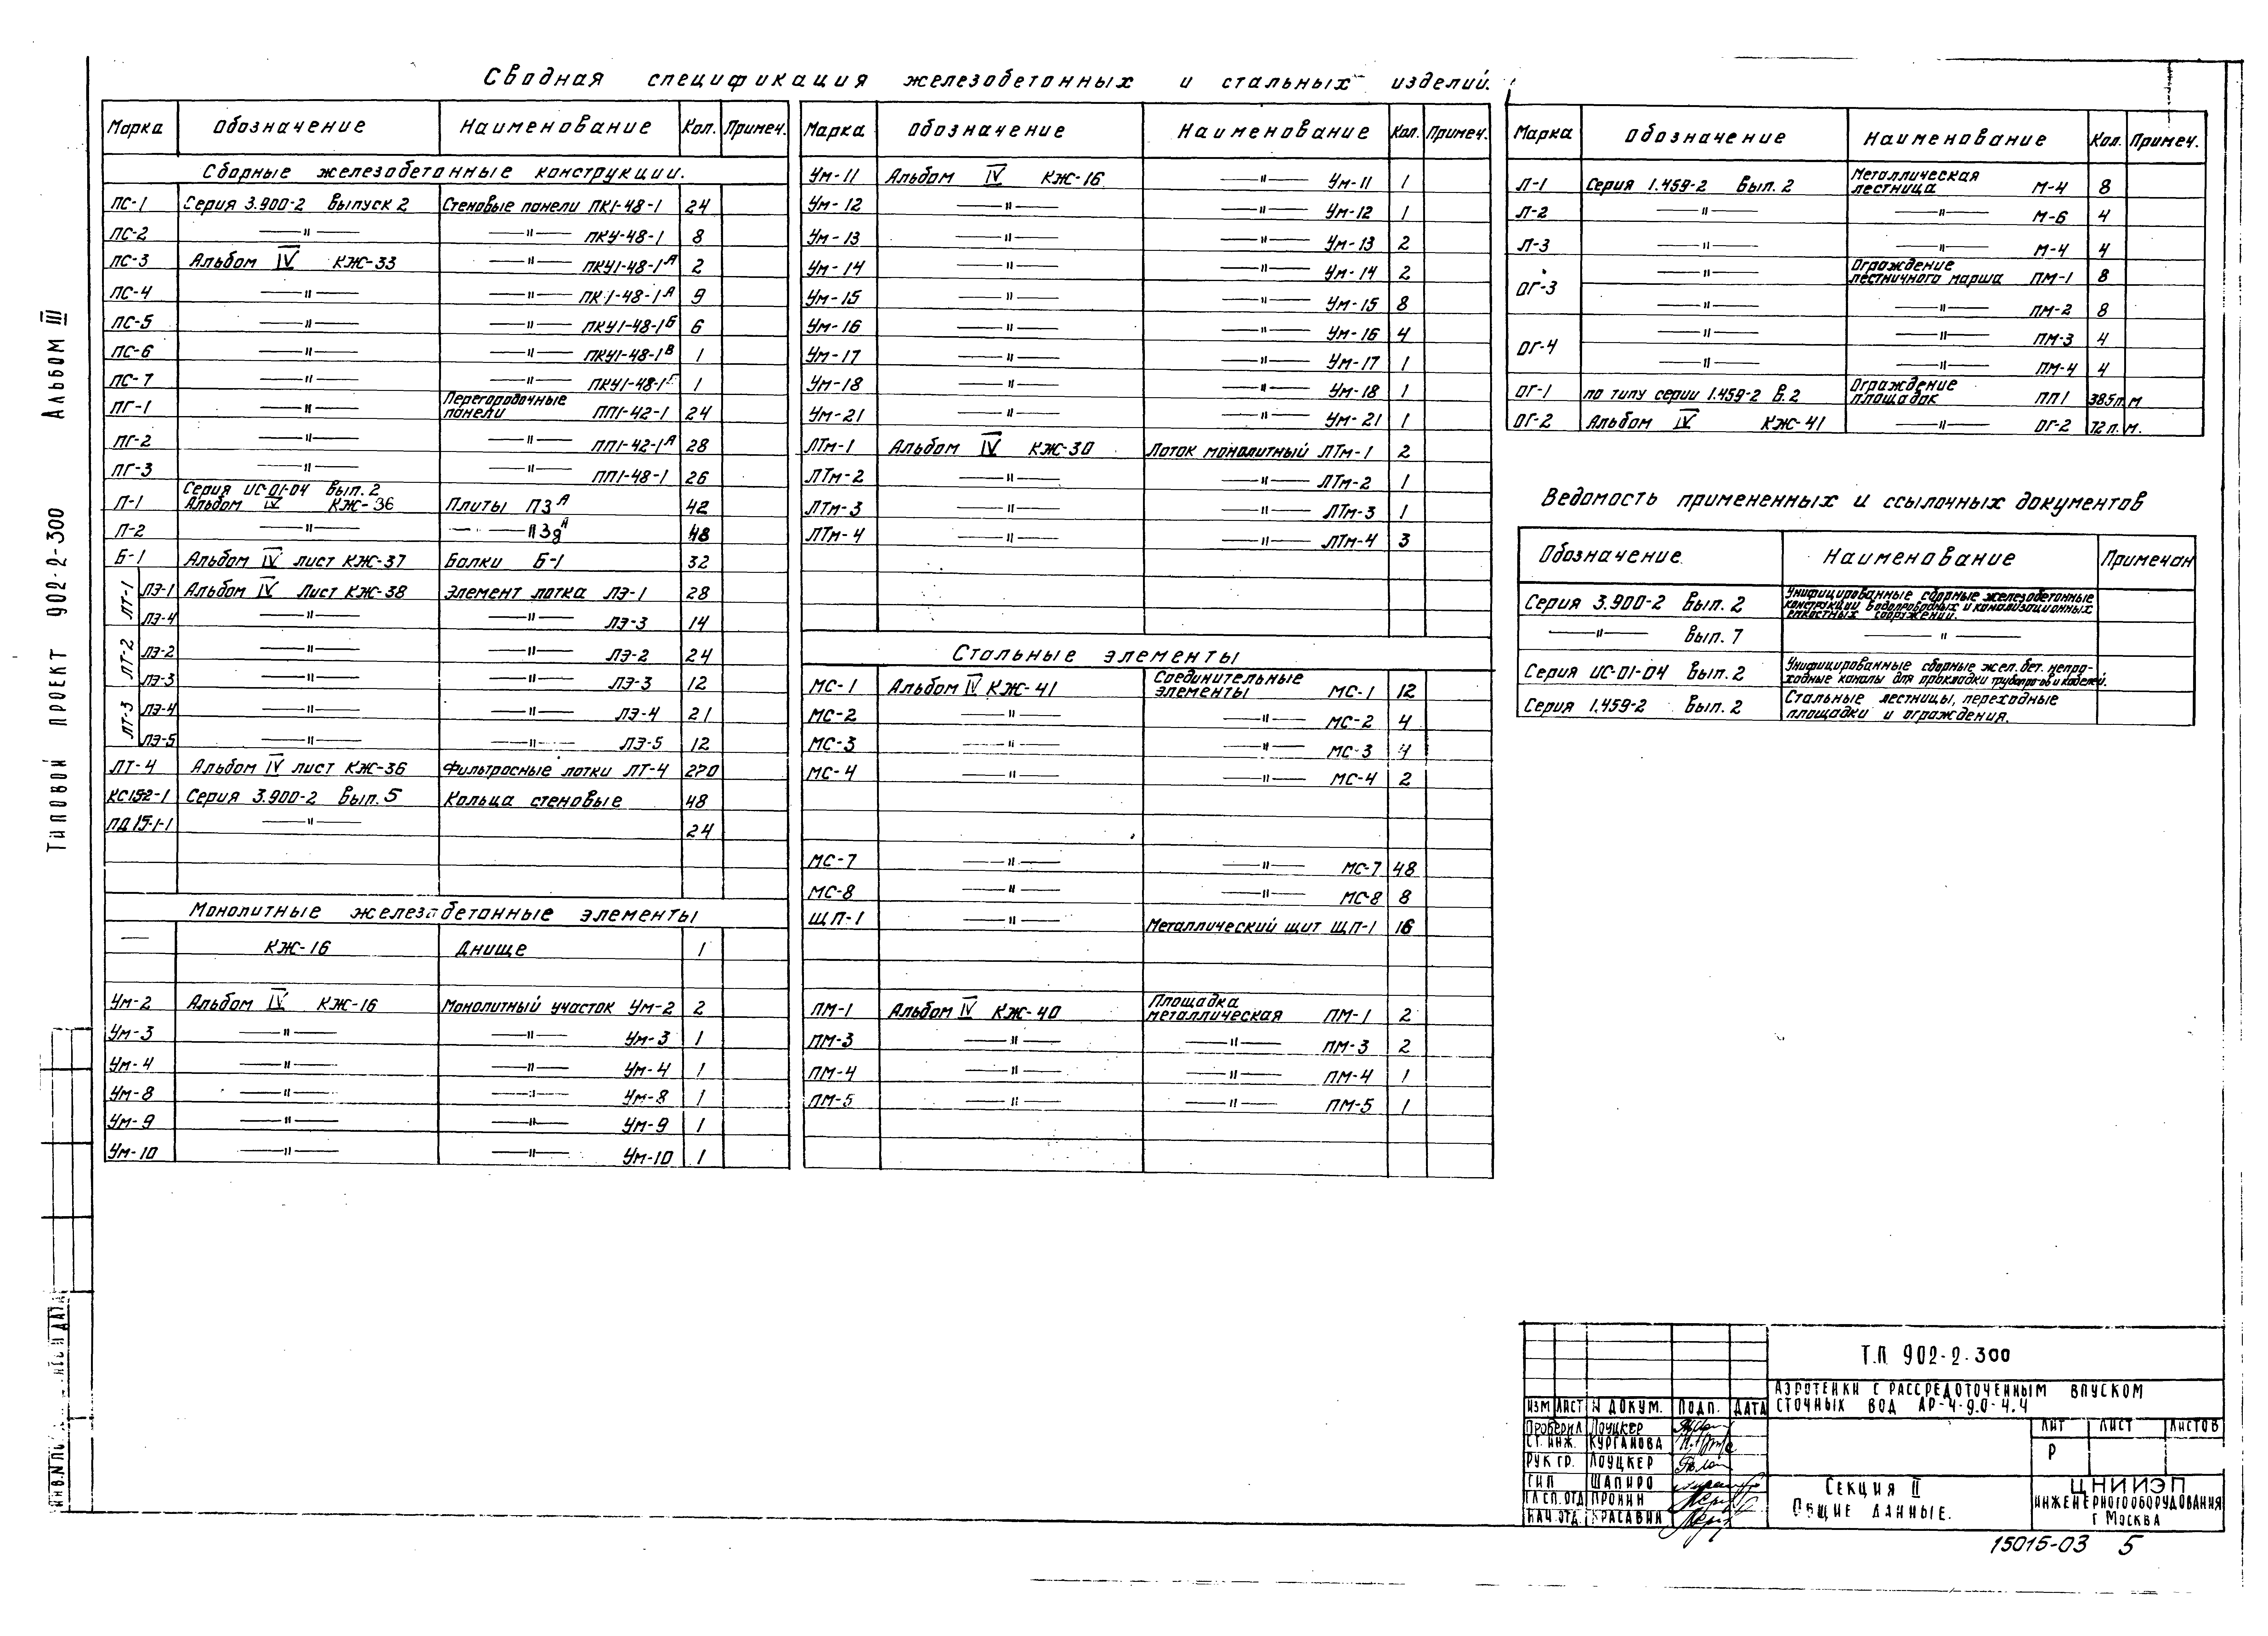 Сводная спецификация железобетонных и стальных изделий.
Марка Обозначение Наименование Кол. Примеч.
Сборные железобетонные конструкции.
ПС-1 Серия 3.900-2 Выпуск 2 Стеновые панели ПК1-48-1 24
ПС-2 —"— —"— ПКУ-48-1 8
ПС-3 Альбом IV КЖ-33 —"— ПКУ1-48-1А 2
ПС-4 —"— —"— ПК1-48-1А 9
ПС-5 —"— —"— ПКУ1-48-1Б 6
ПС-6 —"— —"— ПКУ1-48-1В 1
ПС-7 —"— —"— ПКУ1-48-1Г 1
ПГ-1 —"— Перегородочные
панели ПП1-42-1 24
ПГ-2 —"— —"— ПП1-42-1А 28
ПГ-3 —"— —"— ПП1-48-1 26
Серия ИС-01-04 Вып. 2
П-1 Альбом IV КЖ-36 Плиты П3А 42
П-2 —"— —"— П3дА 48
Б-1 Альбом IV лист КЖ-37 Балки Б-1 32
ЛТ-1 ЛЭ-1 Альбом IV Лист КЖ-38 Элемент лотка ЛЭ-1 28
ЛЭ-4 —"— —"— ЛЭ-3 14
ЛТ-2 ЛЭ-2 —"— —"— ЛЭ-2 24
ЛЭ-3 —"— —"— ЛЭ-3 12
ЛТ-3 ЛЭ-4 —"— —"— ЛЭ-4 21
ЛЭ-5 —"— —"— ЛЭ-5 12
ЛТ-4 Альбом IV лист КЖ-36 Фильтросные лотки ЛТ-4 270
КС152-1 Серия 3.900-2 Вып. 5 Кольца стеновые 48
ПД15-1-1 —"— 24
Монолитные железобетонные элементы
— КЖ-16 Днище 1
Ум-2 Альбом IV КЖ-16 Монолитный участок Ум-2 2
Ум-3 —"— —"— Ум-3 1
Ум-4 —"— —"— Ум-4 1
Ум-8 —"— —"— Ум-8 1
Ум-9 —"— —"— Ум-9 1
Ум-10 —"— —"— Ум-10 1
Марка Обозначение Наименование Кол. Примеч.
Ум-11 Альбом IV КЖ-16 —"— Ум-11 1
Ум-12 —"— —"— Ум-12 1
Ум-13 —"— —"— Ум-13 2
Ум-14 —"— —"— Ум-14 2
Ум-15 —"— —"— Ум-15 8
Ум-16 —"— —"— Ум-16 4
Ум-17 —"— —"— Ум-17 1
Ум-18 —"— —"— Ум-18 1
Ум-21 —"— —"— Ум-21 1
ЛТм-1 Альбом IV КЖ-30 Лоток монолитный ЛТм-1 2
ЛТм-2 —"— —"— ЛТм-2 1
ЛТм-3 —"— —"— ЛТм-3 1
ЛТм-4 —"— —"— ЛТм-4 3
Стальные элементы
МС-1 Альбом IV КЖ-41 Соединительные
элементы МС-1 12
МС-2 —"— —"— МС-2 4
МС-3 —"— —"— МС-3 4
МС-4 —"— —"— МС-4 2
МС-7 —"— —"— МС-7 48
МС-8 —"— —"— МС-8 8
ЩП-1 —"— Металлический щит ЩП-1 16
ПМ-1 Альбом IV КЖ-40 Площадка
металлическая ПМ-1 2
ПМ-3 —"— —"— ПМ-3 2
ПМ-4 —"— —"— ПМ-4 1
ПМ-5 —"— —"— ПМ-5 1
Марка Обозначение Наименование Кол. Примеч.
Л-1 Серия 1.459-2 Вып. 2 Металлическая
лестница М-4 8
Л-2 —"— —"— М-6 4
Л-3 —"— —"— М-4 4
ОГ-3 —"— Ограждение
лестничного марша ПМ-1 8
—"— —"— ПМ-2 8
ОГ-4 —"— —"— ПМ-3 4
—"— —"— ПМ-4 4
ОГ-1 по типу серии 1.459-2 В.2 Ограждение
площадок ПП1 385п.м
ОГ-2 Альбом IV КЖ-41 —"— ОГ-2 72п.м.
Ведомость примененных и ссылочных документов
Обозначение Наименование Примечан
Серия 3.900-2 Вып. 2 Унифицированные сборные железобетонные
конструкции водопроводных и канализационных
емкостных сооружений.
—"— Вып. 7 —"—
Серия ИС-01-04 Вып. 2 Унифицированные сборные жел.бет. непро-
ходные каналы для прокладки трубопро-ов и кабелей.
Серия 1.459-2 Вып. 2 Стальные лестницы, переходные
площадки и ограждения.
Типовой проект 902-2-300 Альбом III
Т.П. 902-2-300
Аэротенки с рассредоточенным впуском
сточных вод АР-4-9.0-4.4
Изм Лист N докум. Подп. Дата
Проверил Лоуцкер
Ст. инж. Курганова
Рук гр. Лоуцкер
ГИП Шапиро
Гл сп. отд Пронин
Нач. отд. Красавин
Лит Лист Листов
Р
Секция II
Общие данные.
ЦНИИЭП
инженерного оборудования
г Москва
15015-03 5